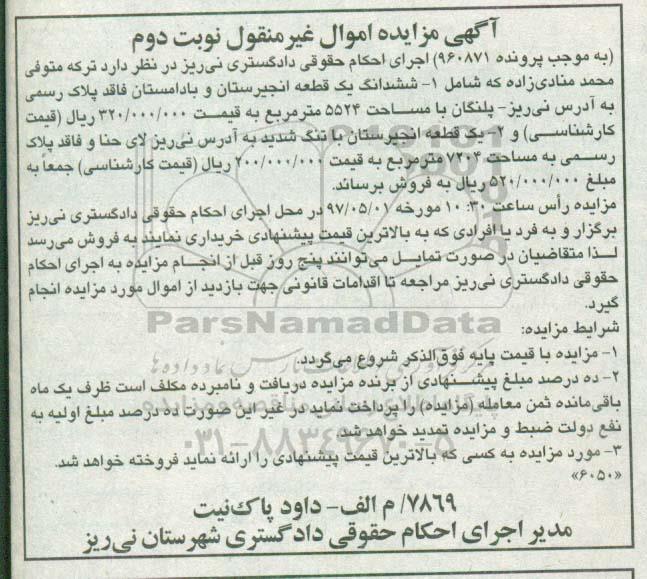 آگهی مزایده اموال غیرمنقول نوبت دوم
(به موجب پرونده ۹۶۰۸۷۱) اجرای احکام حقوقی دادگستری نی‌ریز در نظر دارد ترکه متوفی
محمد منادی‌زاده که شامل ۱- ششدانگ یک قطعه انجیرستان و بادامستان فاقد پلاک رسمی
به آدرس نی‌ریز- پلنگان با مساحت ۵۵۲۴ مترمربع به قیمت ۳۲۰/۰۰۰/۰۰۰ ریال (قیمت
کارشناسی) و ۲- یک قطعه انجیرستان با تنگ شدید به آدرس نی‌ریز لای حنا و فاقد پلاک
رسمی به مساحت ۷۲۰۴ مترمربع به قیمت ۲۰۰/۰۰۰/۰۰۰ ریال (قیمت کارشناسی) جمعاً به
مبلغ ۵۲۰/۰۰۰/۰۰۰ ریال به فروش برساند.
مزایده رأس ساعت ۱۰:۳۰ مورخه ۹۷/۰۵/۰۱ در محل اجرای احکام حقوقی دادگستری نی‌ریز
برگزار و به فرد یا افرادی که به بالاترین قیمت پیشنهادی خریداری نمایند به فروش می‌رسد
لذا متقاضیان در صورت تمایل می‌توانند پنج روز قبل از انجام مزایده به اجرای احکام
حقوقی دادگستری نی‌ریز مراجعه تا اقدامات قانونی جهت بازدید از اموال مورد مزایده انجام
گیرد.
ParsNamadData
شرایط مزایده:
۱- مزایده با قیمت پایه فوق‌الذکر شروع می‌گردد.
۲- ده درصد مبلغ پیشنهادی از برنده مزایده دریافت و نامبرده مکلف است ظرف یک ماه
باقی‌مانده ثمن معامله (مزایده) را پرداخت نماید در غیر این صورت ده درصد مبلغ اولیه به
نفع دولت ضبط و مزایده تمدید خواهد شد.
۰۲۱-۸۸۳۴۹۶۷۰-۵
۳- مورد مزایده به کسی که بالاترین قیمت پیشنهادی را ارائه نماید فروخته خواهد شد.
«۶۰۵۰»
۷۸۶۹/ م الف- داود پاک‌نیت
مدیر اجرای احکام حقوقی دادگستری شهرستان نی‌ریز